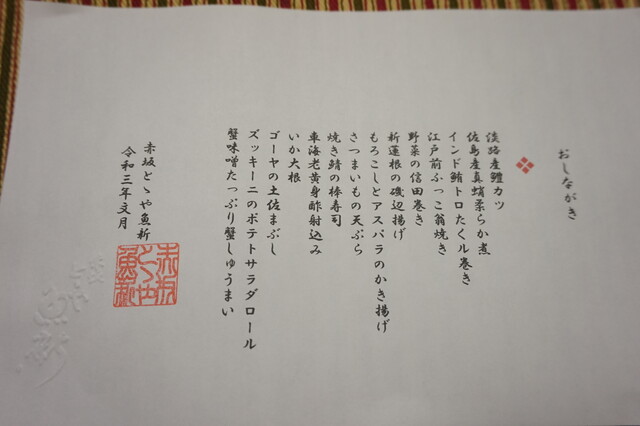 おしながき
淡路産鱧カツ
佐島産真蛸柔らか煮
インド鮪トロたくル巻き
江戸前ふっこ翁焼き
野菜の信田巻き
新蓮根の磯辺揚げ
もろこしとアスパラのかき揚げ
さつまいもの天ぷら
焼き鯖の棒寿司
車海老黄身酢射込み
いか大根
ゴーヤの土佐まぶし
ズッキーニのポテトサラダロール
蟹味噌たっぷり蟹しゅうまい
赤坂とゝや魚新
令和三年文月
赤坂
とゝや
魚新